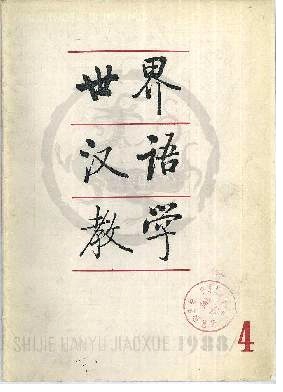 世界
汉语
教学
SHIJIE HANYU JIAOXUE 1988/4